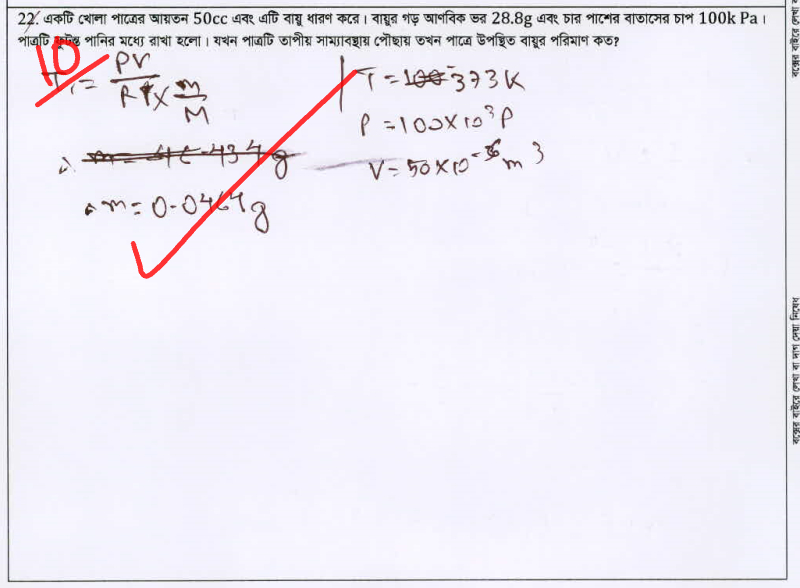 22. একটি খোলা পাত্রের আয়তন 50cc এবং এটি বায়ু ধারণ করে। বায়ুর গড় আণবিক ভর 28.8g এবং চার পাশের বাতাসের চাপ 100k Pa।
পাত্রটি ফুটন্ত পানির মধ্যে রাখা হলো। যখন পাত্রটি তাপীয় সাম্যাবস্থায় পৌছায় তখন পাত্রে উপস্থিত বায়ুর পরিমাণ কত?
10
PV
m
M
T = 373K
P = 100×10³ P
V = 50×10⁻⁶ m³
m = 0.0464 g
বক্সের বাইরে লেখা বা দাগ দেয়া নিষেধ